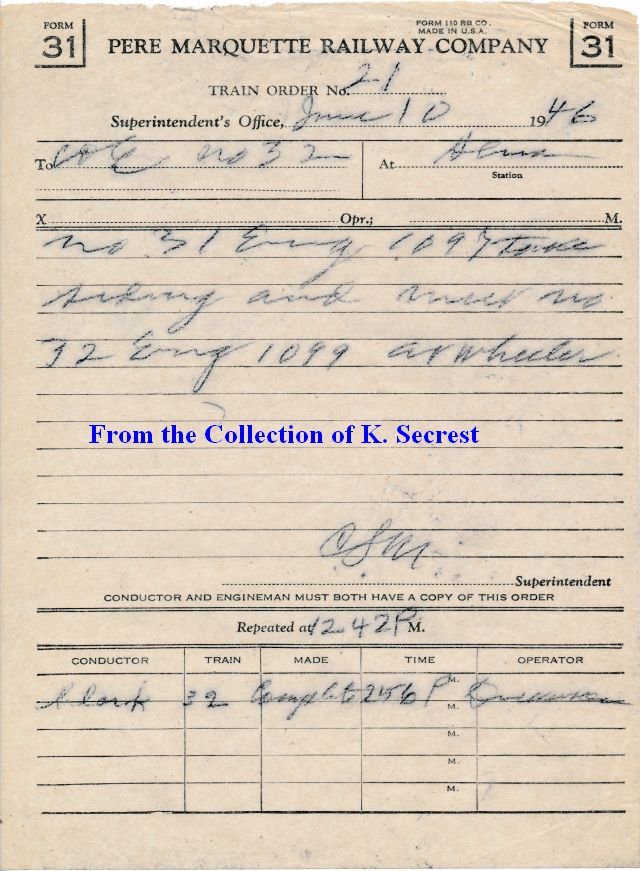 FORM 31
FORM 110 RB CO.
MADE IN U.S.A.
FORM 31
PERE MARQUETTE RAILWAY COMPANY
TRAIN ORDER No. 21
Superintendent's Office, June 10 1946
To C&E No 32 At Alma
Station
X Opr.; M.
No. 31 Eng 1097 take
siding and meet No.
32 Eng 1099 at Wheeler
From the Collection of K. Secrest
CSM
Superintendent
CONDUCTOR AND ENGINEMAN MUST BOTH HAVE A COPY OF THIS ORDER
Repeated at 1242P M.
CONDUCTOR TRAIN MADE TIME OPERATOR
M.
Clark 32 Complete 256 P
M.
M.
M.
M.